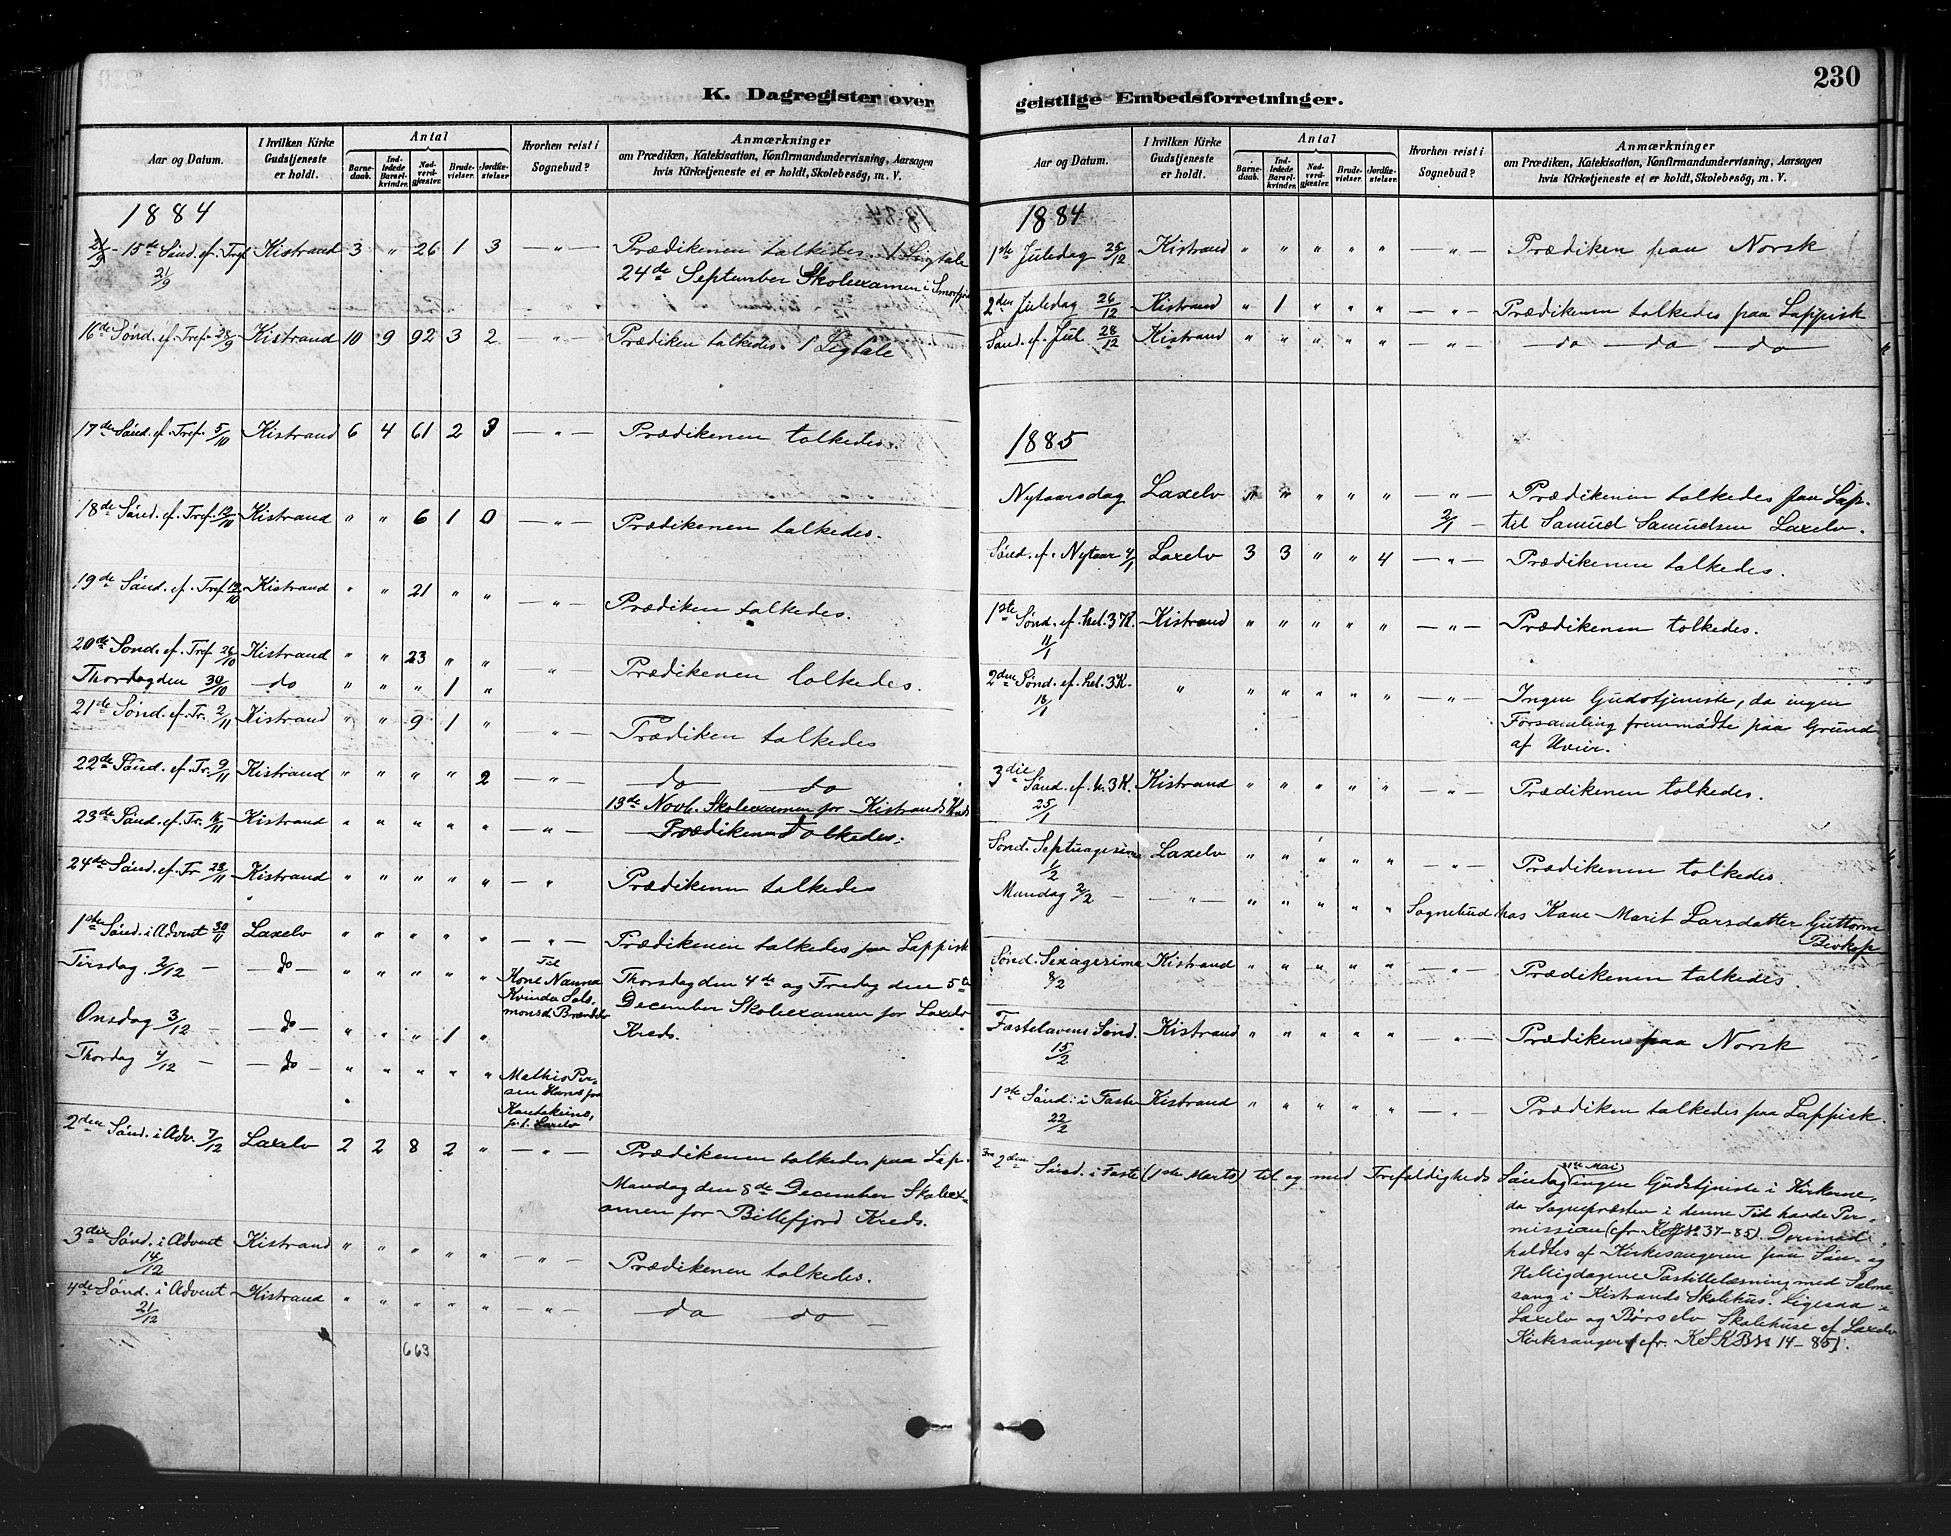 K. Dagregister over
Aar og Datum.
I hvilken Kirke Gudstjeneste er holdt.
Antal
Barnedaab.
Indledede Barselkvinder.
Nadverdgjester.
Brudevielser.
Jordfæstelser.
Hvorhen reist i Sognebud?
Anmærkninger
om Prædiken, Katekisation, Konfirmandundervisning, Aarsagen
hvis Kirketjeneste ei er holdt, Skolebesøg, m. V.
1884
15de Sønd. ef. Tref. 21/9 Kistrand 3 " 26 1 3 — " — Prædikenen talkedes. 1 Ligtale
24de September Skoleexamen i Smørfjord
16de Sønd. ef. Tref. 28/9 Kistrand 10 9 92 3 2 — " — Prædiken talkedes. 1 Ligtale
17de Sønd. ef. Tref. 5/10 Kistrand 6 4 61 2 3 — " — Prædikenen tolkedes.
18de Sønd. ef. Tref. 12/10 Kistrand " " 6 1 0 — " — Prædikenen talkedes.
19de Sønd. ef. Tref. 19/10 Kistrand " " 21 " " — " — Prædiken talkedes.
20de Sønd. ef. Tref. 26/10 Kistrand " " 23 " " " Prædikenen talkedes.
Thordag den 30/10 — do " " " 1 "
21de Sønd. ef. Tr. 2/11 Kistrand " " 9 1 " — " — Prædiken talkedes
22de Sønd. ef. Tr. 9/11 Kistrand " " " " 2 — " — do do
13de Novb. Skoleexamen for Kistrands Kreds
23de Sønd. ef. Tr. 16/11 Kistrand " " " " " — " — Prædikenen tolkedes.
24de Sønd. ef. Tr 23/11 Kistrand " " " " " — " Prædikenen talkedes
1ste Sønd. i Advent 30/11 Laxelv " " " " " — " — Prædikenen talkedes paa Lappisk
Tirsdag 2/12 — — do — " " " " " Til Kone Nanna Thorsdag den 4de og Fredag den 5te
December Skoleexamen for Laxelv
Kreds.
Onsdag 3/12 — — do — " " " 1 "
Thordag 4/12 — — do " " " " " Mathis Per-
sen
Kautokeino,
p. t. Laxelv
2den Sønd. i Adv. 7/12 Laxelv 2 2 8 2 " — " — Prædikenen talkedes paa Lap.
Mandag den 8de December Skoleex-
amen for Billefjord Kreds.
3die Sønd. i Advent 14/12 Kistrand " " " " " — " Prædikenen talkedes.
4de Sønd. i Advent 21/12 Kistrand " " " " " — " — do do —
663
geistlige Embedsforretninger.
230
Aar og Datum.
I hvilken Kirke Gudstjeneste er holdt.
Antal
Barnedaab.
Indledede Barselkvinder.
Nadverdgjester.
Brudevielser.
Jordfæstelser.
Hvorhen reist i Sognebud?
Anmærkninger
om Prædiken, Katekisation, Konfirmandundervisning, Aarsagen
hvis Kirketjeneste ei er holdt, Skolebesøg, m. V.
1884
1ste Juledag 25/12 Kistrand " " " " " — " — Prædiken paa Norsk
2den Juledag 26/12 Kistrand " 1 " " " — " — Prædikenen talkedes paa Lappisk
Sønd. ef. Jul 28/12 Kistrand " " " " " — " — do — do — do —
1885
Nytaarsdag Laxelv " " " " " — " — Prædikenen talkedes paa Lap.
2/1 — til Samuel Samuelsen Laxelv.
Sønd. ef. Nytaar 4/1 Laxelv 3 3 " " 4 — " — Prædikenen talkedes.
1ste Sønd. ef. hel. 3 K. 11/1 Kistrand " " " " " — " — Prædikenen tolkedes.
2den Sønd. ef. hel. 3 K. 18/1 " " " " " " — " — Ingen Gudstjeniste, da ingen
Forsamling fremmødte paa Grund
af Uveir.
3die Sønd. ef. h. 3 K. 25/1 Kistrand " " " " " — " — Prædikenen talkedes.
Sønd. Septuagesima 1/2 Laxelv " " " " " — " — Prædikenen tolkedes.
Mandag 2/2 — — " — " " " " " Sognebud hos Kone Marit Larsdatter Guttorm
Sønd. Sexagesima 8/2 Kistrand " " " " " — " — Prædikenen talkedes.
Fastelavens Sønd. 15/2 Kistrand " " " " " — " — Prædiken paa Norsk
1ste Sønd. i Faste 22/2 Kistrand " " " " " — " — Prædiken talkedes paa Lappisk.
Fra 2den Sønd. i Faste (1ste Marts) til og med Trefoldigheds Søndag (31te Mai) ingen Gudstjeniste i Kirkerne,
da Sognepræsten i denne Tid havde Per-
mission (cfr. No 37-85). Derimod
holdtes af Kirkesangeren paa Søn- og
Helligdagene Postillelæsning med Salme-
sang i Kistrands Skolehus. Ligesaa i
Laxelv og Børselv Skolehuse af Laxelv
Kirkesanger (cfr. KSKB No 14-85).